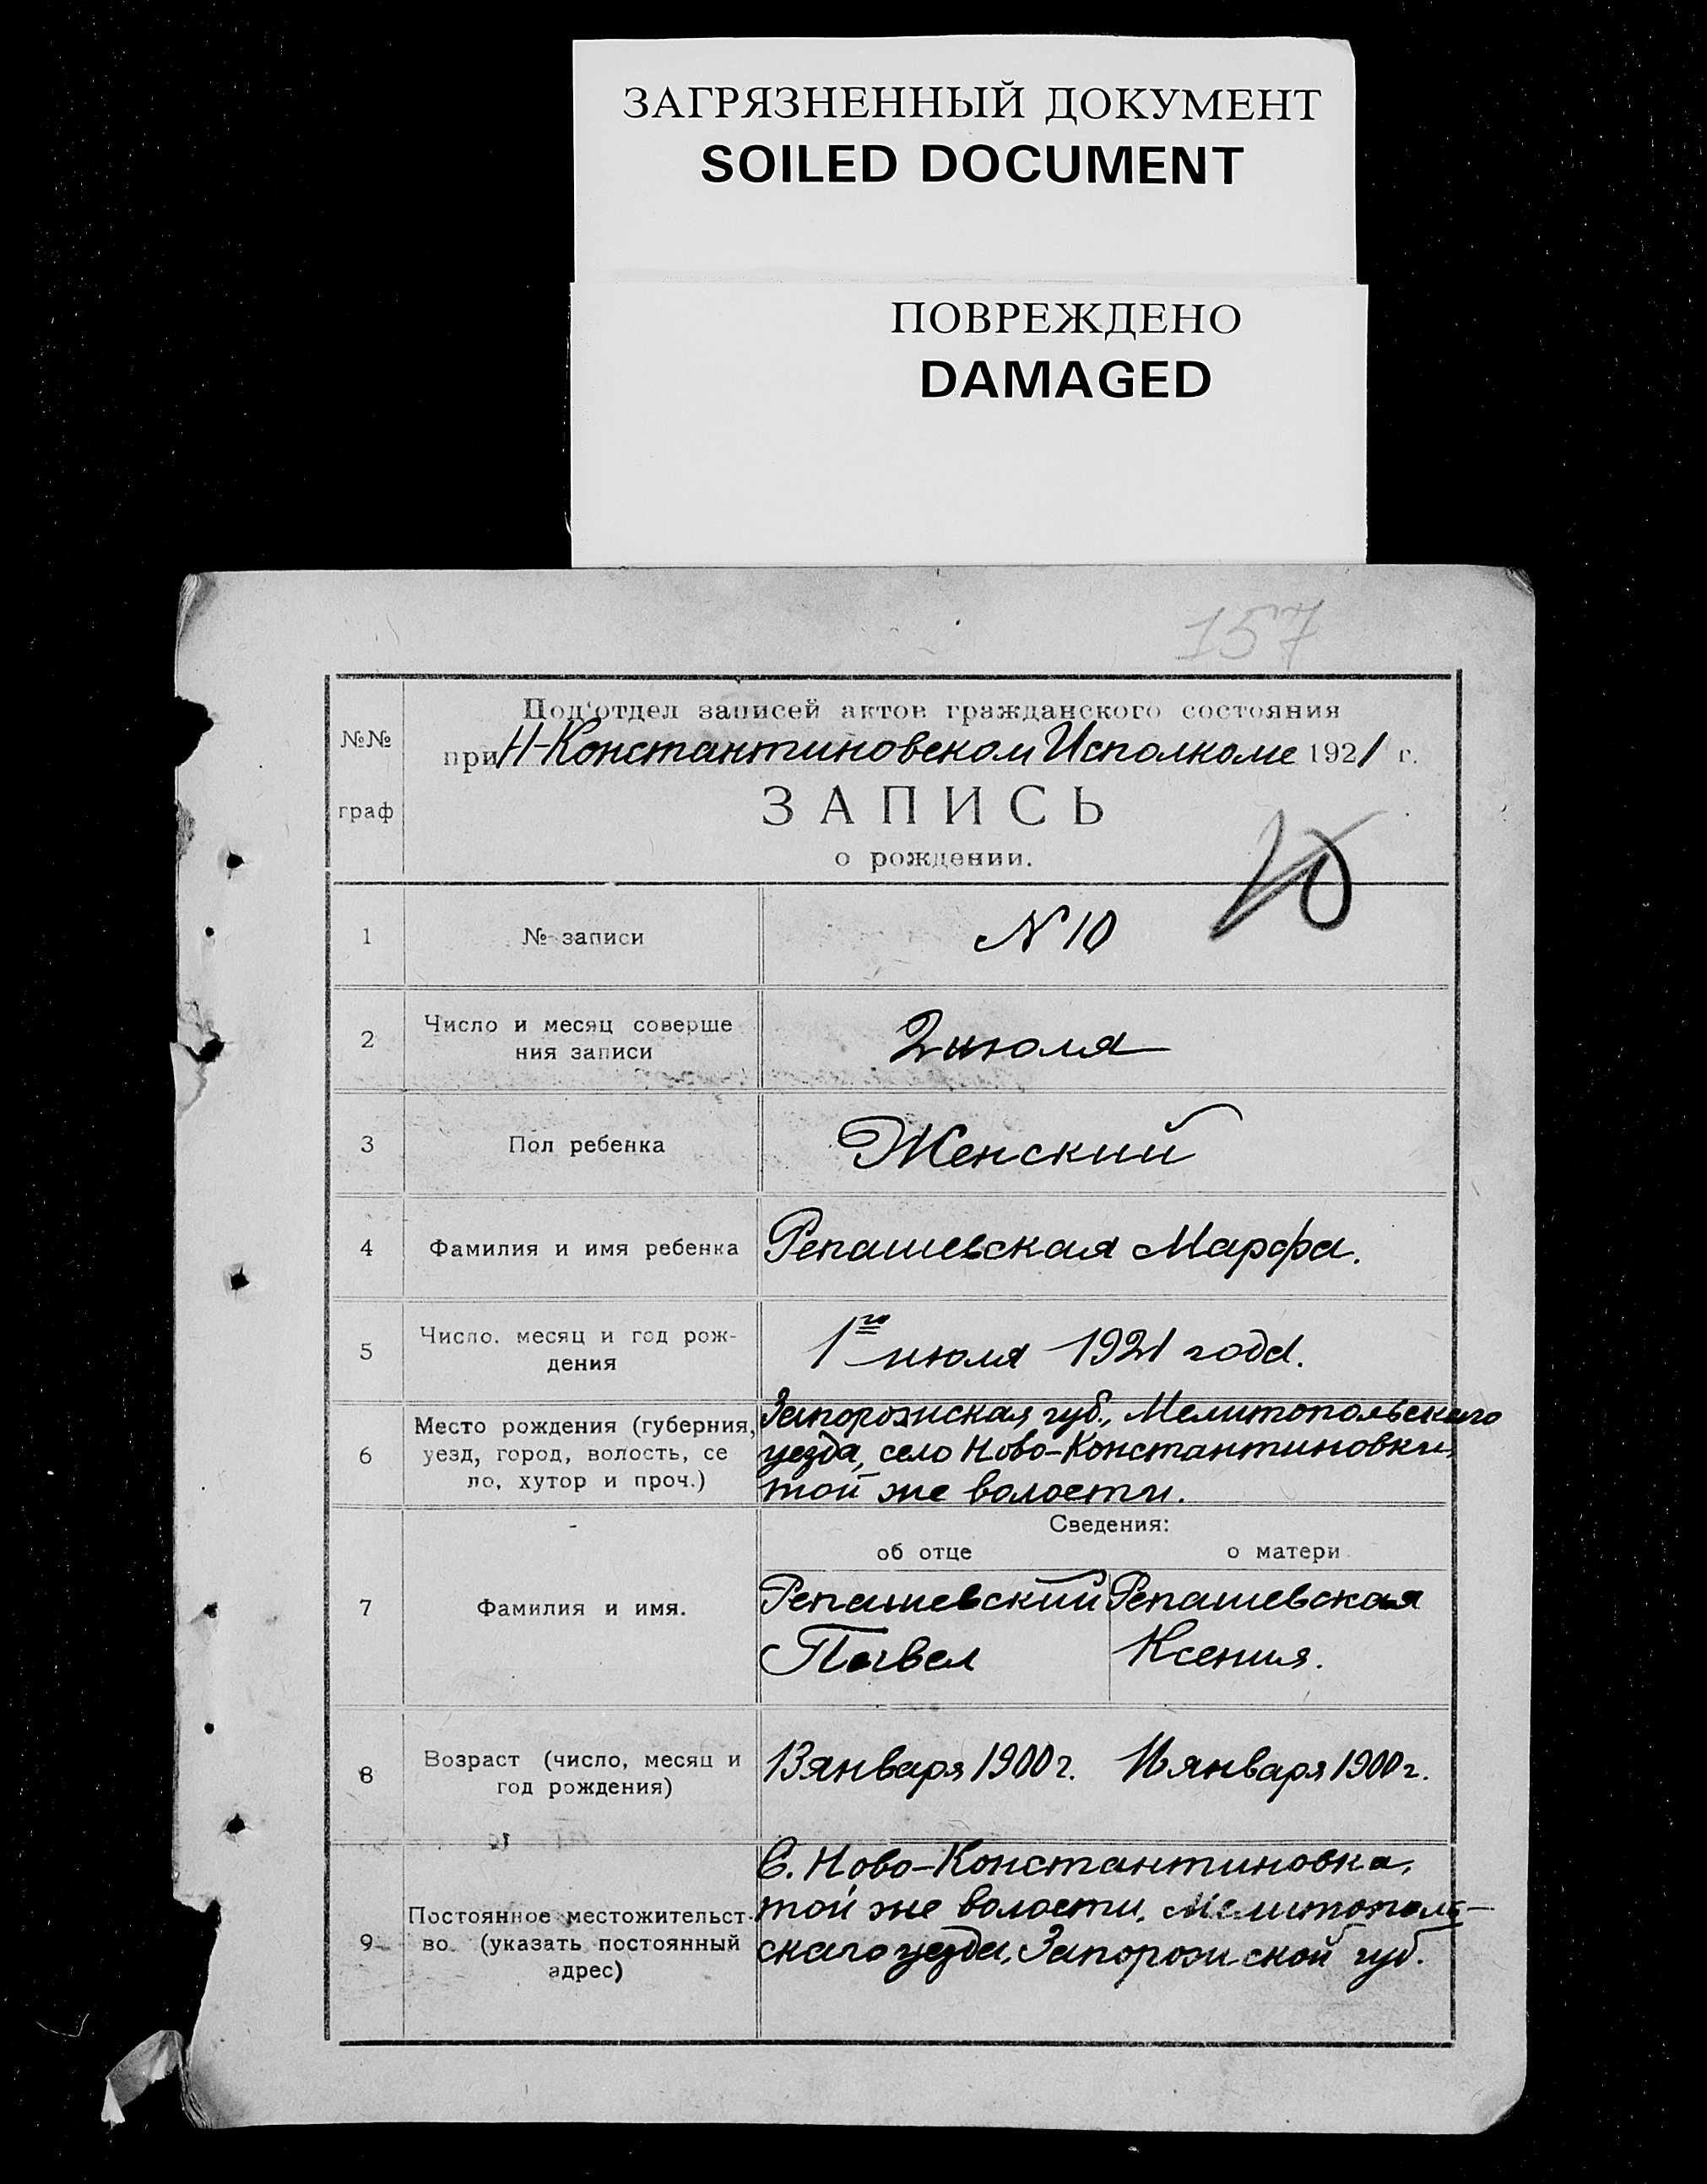 ЗАГРЯЗНЕННЫЙ ДОКУМЕНТ
SOILED DOCUMENT
ПОВРЕЖДЕНО
DAMAGED
157
№№
граф
Под'отдел записей актов гражданского состояния
при Н-Константиновском Исполкоме 1921 г.
ЗАПИСЬ
о рождении.
1
№ записи
N 10
2
Число и месяц соверше
ния записи
2 июля
3
Пол ребенка
Женский
4
Фамилия и имя ребенка
Репашевская Марфа.
5
Число, месяц и год рож-
дения
1го июля 1921 года.
6
Место рождения (губерния,
уезд, город, волость, се
ло, хутор и проч.)
Запорожская губ., Мелитопольского
уезда, село Ново-Константиновки,
той же волости.
Сведения:
об отце
о матери
7
Фамилия и имя.
Репашевский
Павел
Репашевская
Ксения.
8
Возраст (число, месяц и
год рождения)
13 января 1900 г.
января 1900 г.
9
Постоянное местожительст-
во (указать постоянный
адрес)
С. Ново-Константиновка,
той же волости, Мелитополь-
скаго уезда, Запорожской губ.